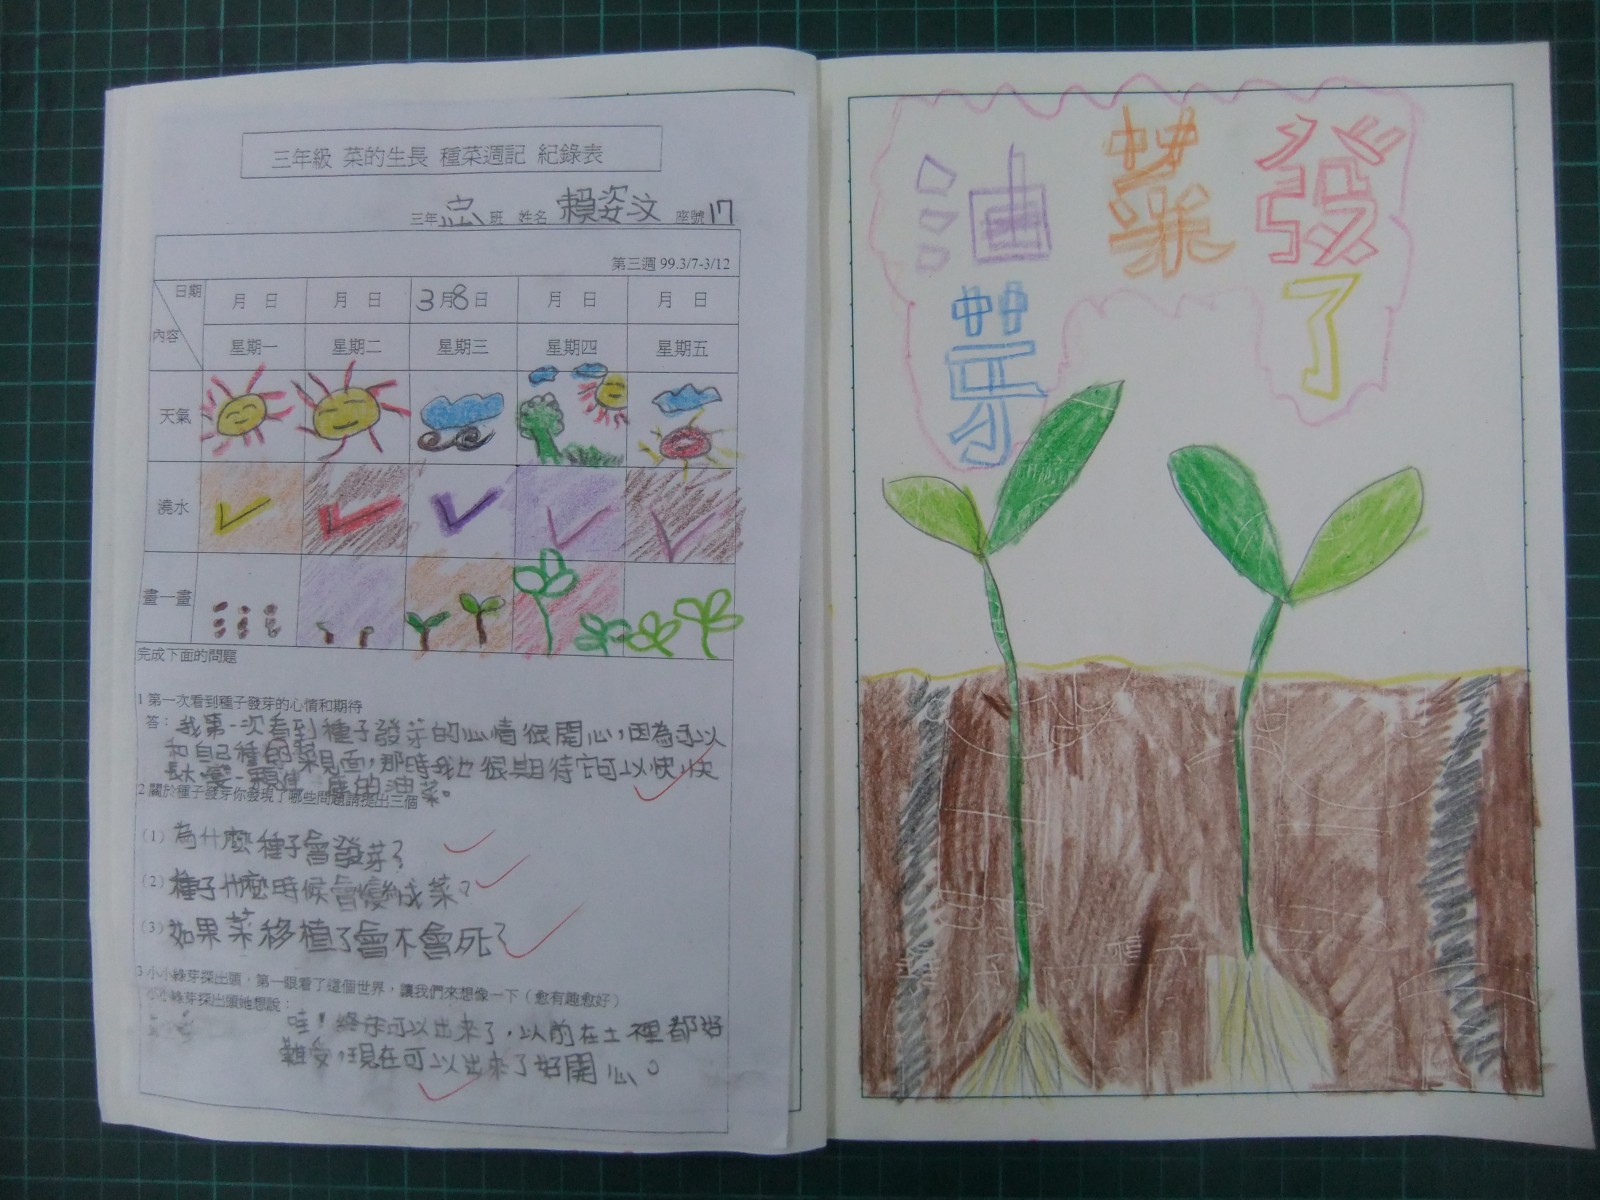 三年級 菜的生長 種菜週記 紀錄表
三年忠班 姓名 賴姿汶 座號17
第三週 99.3/7-3/12
日期 內容
月 日 月 日 3月8日 月 日 月 日
星期一 星期二 星期三 星期四 星期五
天氣
澆水
畫一畫
完成下面的問題
1 第一次看到種子發芽的心情和期待
答：我第一次看到種子發芽的心情很開心，因為可以
和自己種的菜見面，那時我也很期待它可以快快
長大，變一顆 的油菜。
2 關於種子發芽你發現了哪些問題請提出三個
(1) 為什麼種子會發芽？
(2) 種子什麼時候會變成菜？
(3) 如果菜移植了會不會死？
3 小小綠芽探出頭，第一眼看了這個世界，讓我們來想像一下（愈有趣愈好）
小小綠芽探出頭她想說：
哇！終於可以出來了，以前在土裡都好
難受，現在可以出來了好開心。
油菜發
芽了
種子